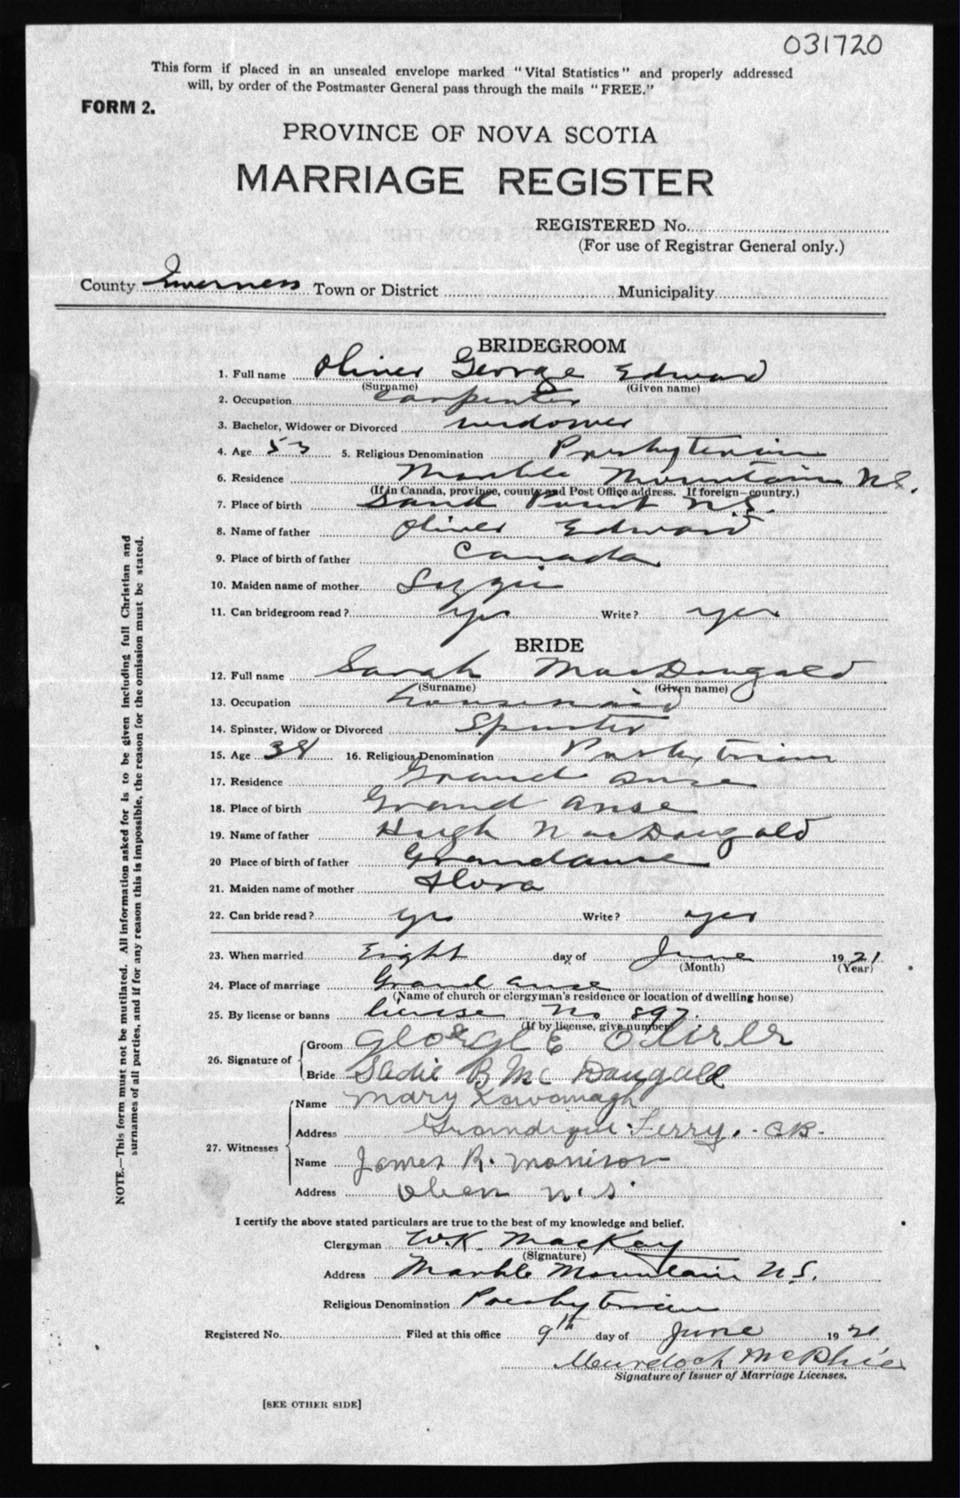 031720
This form if placed in an unsealed envelope marked "Vital Statistics" and properly addressed
will, by order of the Postmaster General pass through the mails "FREE."
FORM 2.
PROVINCE OF NOVA SCOTIA
MARRIAGE REGISTER
REGISTERED No.
(For use of Registrar General only.)
County Inverness Town or District Municipality
BRIDEGROOM
1. Full name Oliver George Edward
(Surname) (Given name)
2. Occupation carpenter
3. Bachelor, Widower or Divorced widower
4. Age 53 5. Religious Denomination Presbyterian
6. Residence Marble Mountain N.S.
(If in Canada, province, county and Post Office address. If foreign—country.)
7. Place of birth Sand Point N.S.
8. Name of father Oliver Edward
9. Place of birth of father Canada
10. Maiden name of mother Lizzie
11. Can bridegroom read? yes Write? yes
BRIDE
12. Full name Sarah MacDougald
(Surname) (Given name)
13. Occupation housemaid
14. Spinster, Widow or Divorced Spinster
15. Age 38 16. Religious Denomination Presbyterian
17. Residence Grand anse
18. Place of birth Grand anse
19. Name of father Hugh MacDougald
20 Place of birth of father Grandanse
21. Maiden name of mother Flora
22. Can bride read? yes Write? yes
23. When married Eight day of June 1921
(Month) (Year)
24. Place of marriage Grand anse
(Name of church or clergyman's residence or location of dwelling house)
25. By license or banns license No 897
(If by license, give number)
26. Signature of
Groom George E Oliver
Bride Sadie B Mc Dougall
27. Witnesses
Name Mary Kavanagh
Address Grandique Ferry. CB.
Name James R. Morrison
Address Oben N.S.
I certify the above stated particulars are true to the best of my knowledge and belief.
Clergyman W.K. MacKay
(Signature)
Address Marble Mountain N.S.
Religious Denomination Presbyterian
Registered No. Filed at this office 9th day of June 1921
Murdoch McPhie
Signature of Issuer of Marriage Licenses.
[SEE OTHER SIDE]
NOTE.—This form must not be mutilated. All information asked for is to be given including full Christian and
surnames of all parties, and if for any reason this is impossible, the reason for the omission must be stated.